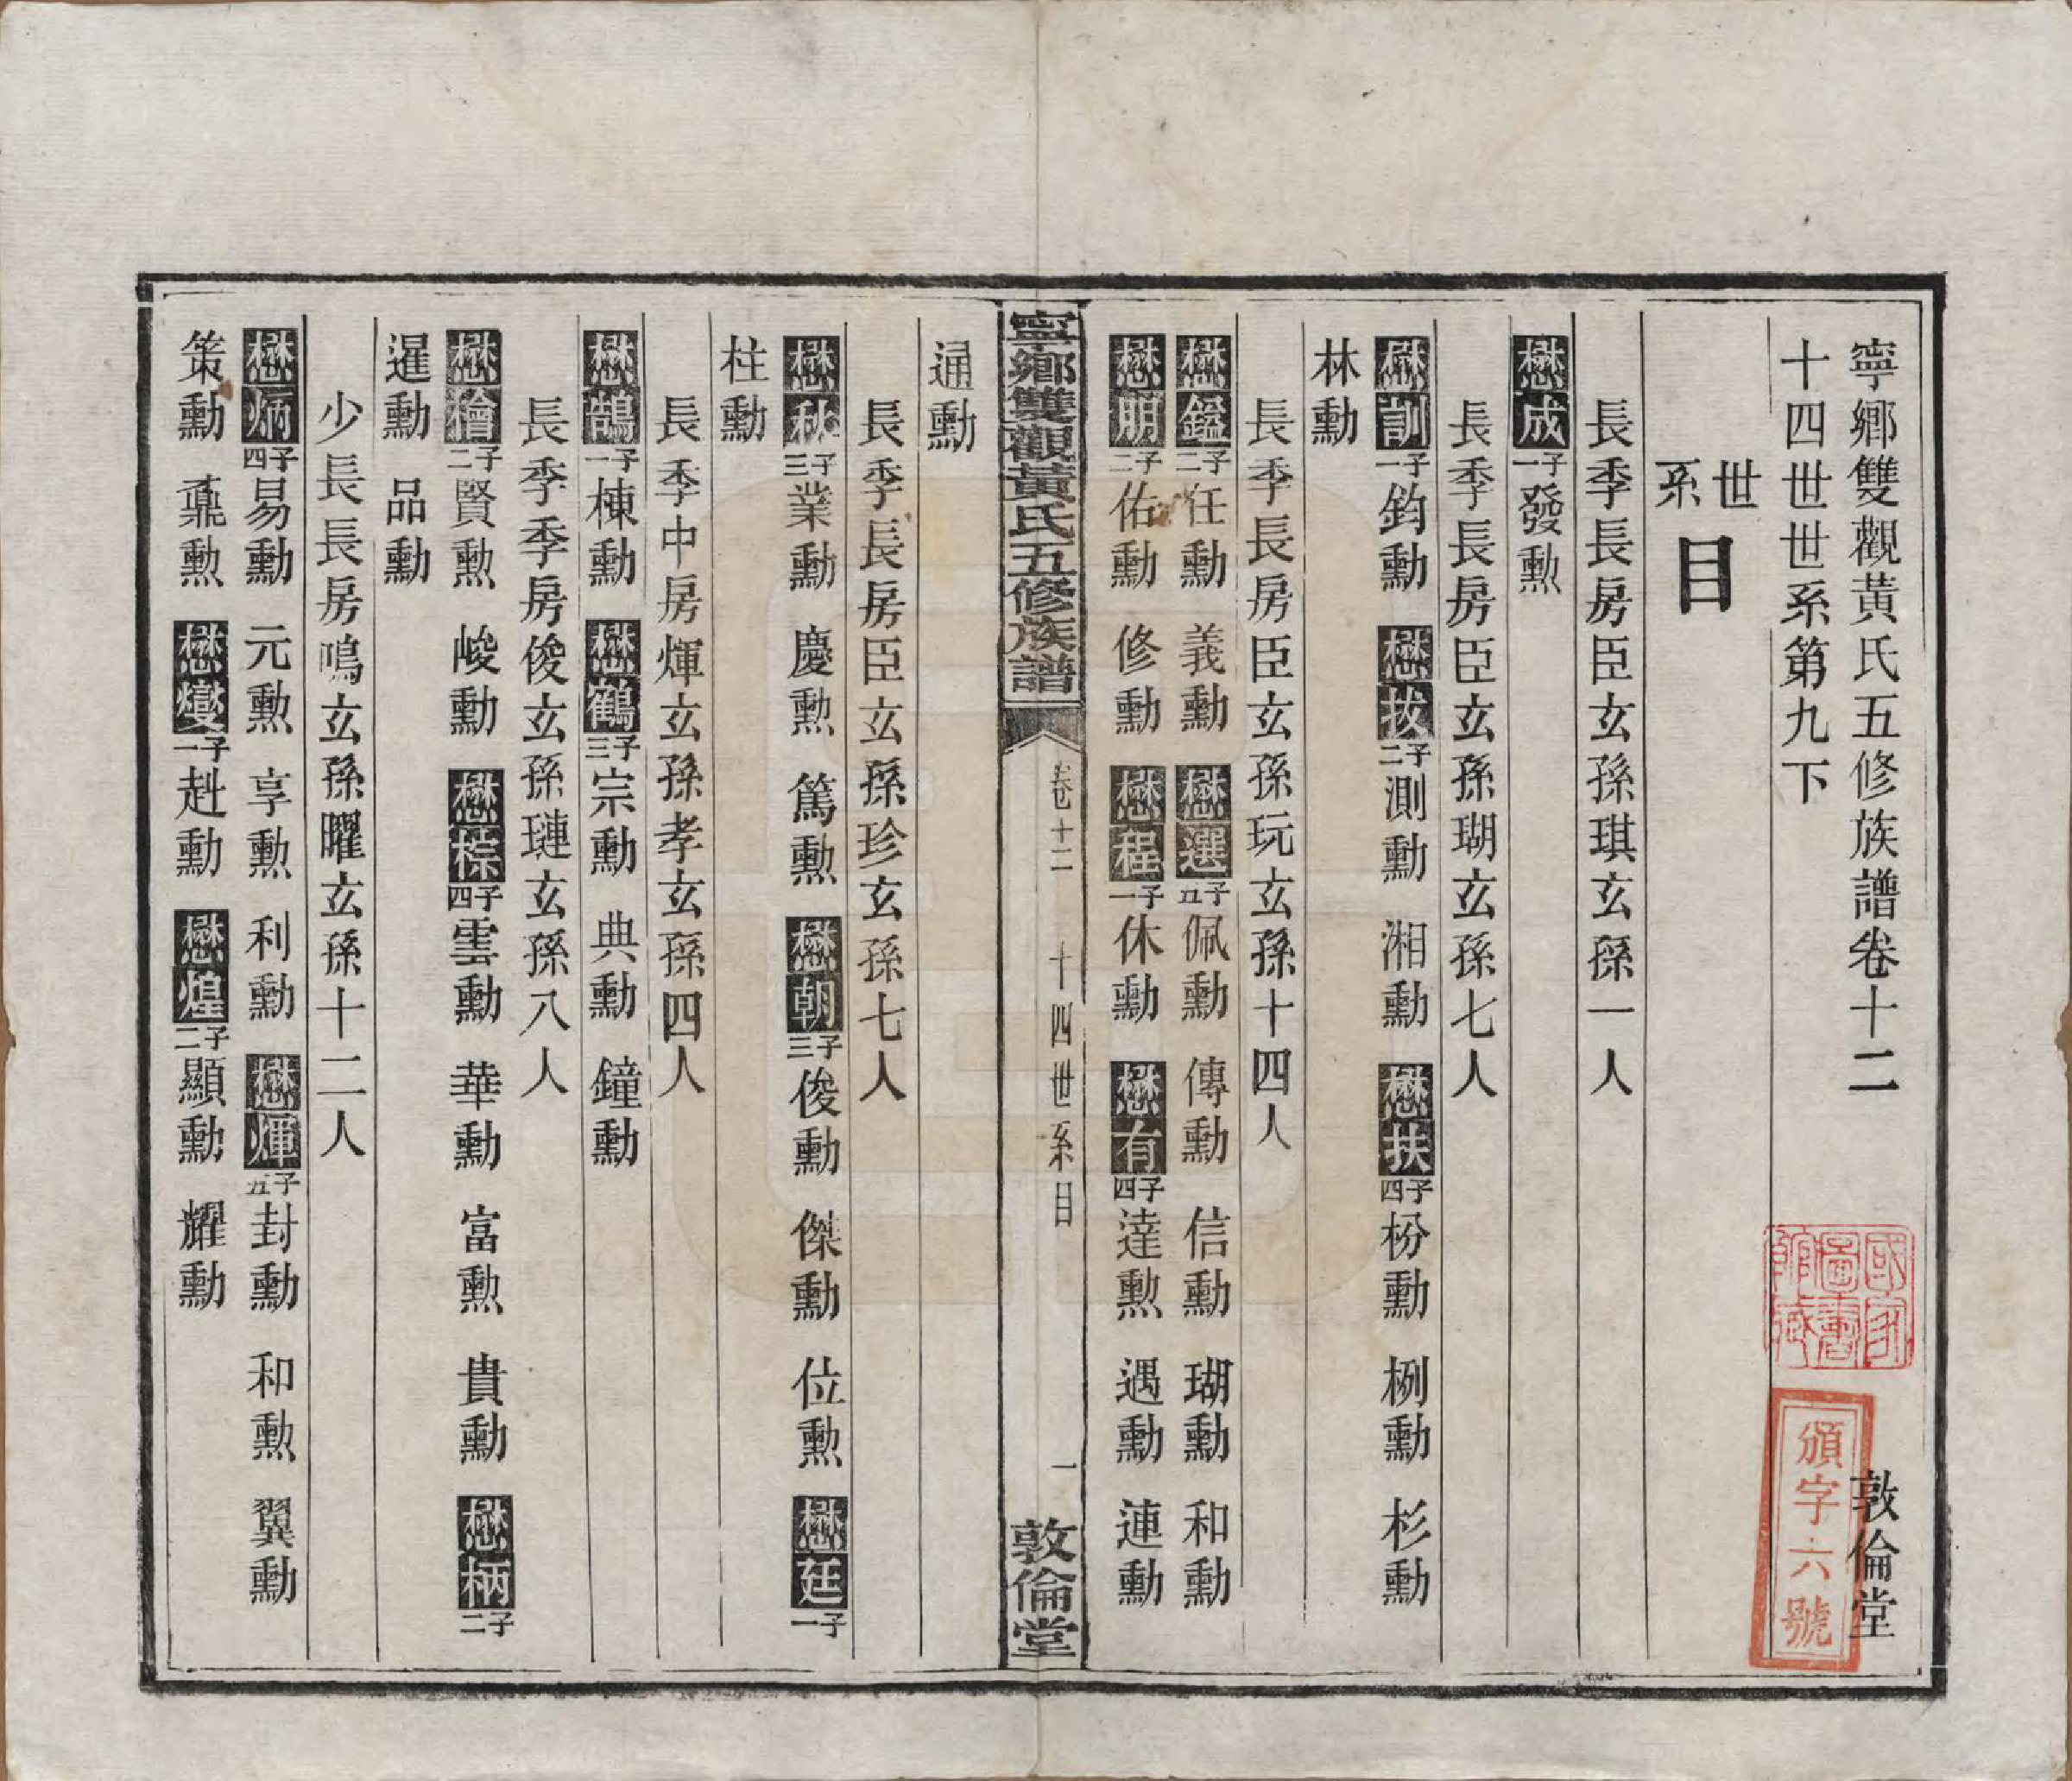 寧鄉雙觀黃氏五修族譜卷十二 敦倫堂
十四世世系第九下
世系目
長季長房臣玄孫琪玄孫一人
懋成一子發勲
長季長房臣玄孫瑚玄孫七人
懋訓一子鈞勳 懋拔二子測勳 湘勳 懋扶四子枌勳 栵勳 杉勳
林勳
長季長房臣玄孫玩玄孫十四人
懋鎰二子任勳 義勳 懋選五子佩勳 傳勳 信勳 瑚勳 和勳
懋朋二子佑勳 修勳 懋程一子休勳 懋有四子達勲 遇勳 連勳
寧鄉雙觀黃氏五修族譜 卷十二 十四世系目 一 敦倫堂
通勳
長季長房臣玄孫珍玄孫七人
懋秋三子業勳 慶勲 篤勲 懋朝三子俊勳 傑勳 位勲 懋廷一子
柱勳
長季中房煇玄孫孝玄孫四人
懋鵠一子棟勳 懋鶴三子宗勳 典勳 鐘勳
長季季房俊玄孫璉玄孫八人
懋檜二子賢勲 峻勳 懋棕四子雲勳 華勳 富勲 貴勳 懋柄二子
暹勳 品勳
少長長房鳴玄孫曜玄孫十二人
懋炳四子易勳 元勲 享勲 利勳 懋煇五子封勳 和勲 翼勳
策勳 鼐勲 懋燮一子赴勳 懋煌二子顯勳 耀勳
國家圖書館藏
頒字六號